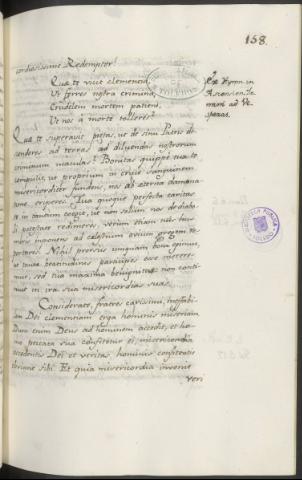 158.
cordiosissime Redemptor!
Quæ te vicit clementia,
Ut ferres nostra crimina,
Crudelem mortem patiens,
Ut nos a morte tolleres?
Ex Hymn. in
Ascension. Do
mini ad Ve
speras.
Quæ te superavit pietas, ut de sinu Patris de-
scenderes ad terras, ad diluendas nostrorum
criminum maculas? Bonitas quippe tua te
compulit, ut proprium in cruce sanguinem
misericorditer fundens, nos ab æterna damna-
tione eriperes. Tua quoque perfecta caritas
te in tantum coegit, ut non solum nos de diabo-
li potestate redimeres, verum etiam tuis hu-
meris imponens ad cælestium ovium gregem re-
portares. Nihil prorsus unquam boni egimus,
ut tantæ beatitudinis participes esse mercere-
mur, sed tua maxima benignitas non conti-
nuit in ira sua misericordias suas.
Considerate, fratres carissimi, ineffabi-
lem Dei clementiam erga hominis miseriam.
Dum enim Deus ad hominem accedit, et ho-
mo peccata sua confitetur ei, misericordia
accedentis Dei et veritas hominis confitentis
obviant sibi. Et quia misericordia invenit
veri